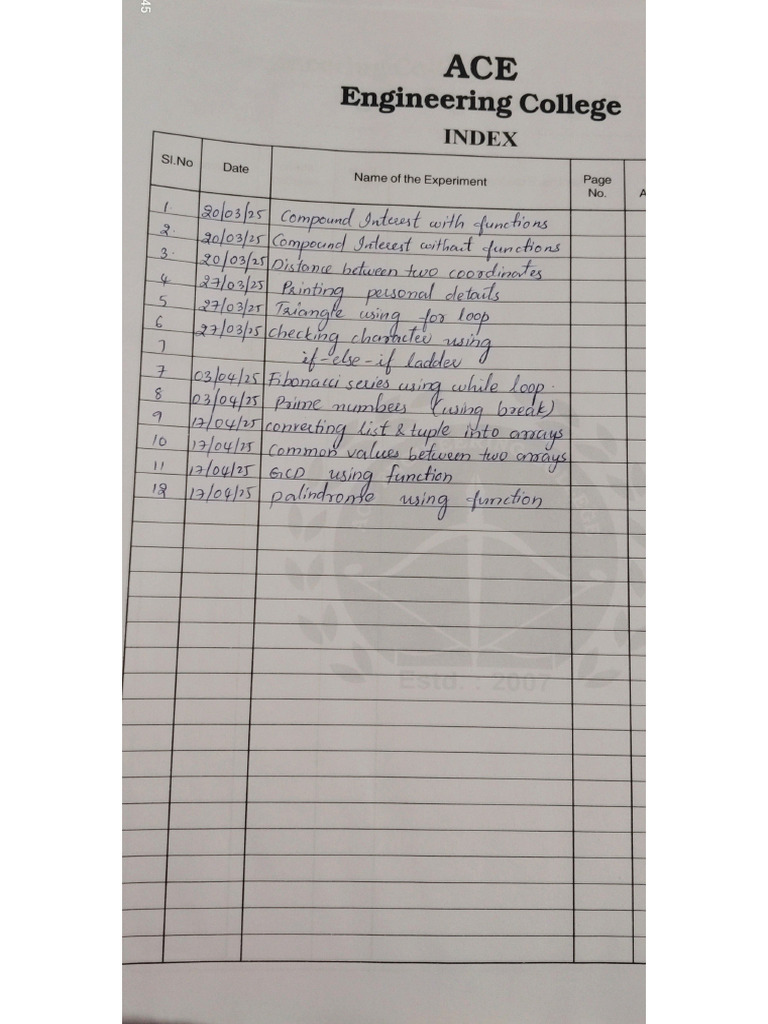 45
ACE
Engineering College
INDEX
Sl.No Date Name of the Experiment Page No. A
1. 20/03/25 Compound Interest with functions
2. 20/03/25 Compound Interest without functions
3. 20/03/25 Distance between two coordinates
4 27/03/25 Printing personal details
5 27/03/25 Triangle using for loop
6 27/03/25 checking character using
7 if-else-if ladder
7 03/04/25 Fibonacci series using while loop.
8 03/04/25 Prime numbers (using break)
9 17/04/25 converting list & tuple into arrays
10 17/04/25 Common values between two arrays
11 17/04/25 GCD using function
12 17/04/25 palindrome using function
Estd. : 2007